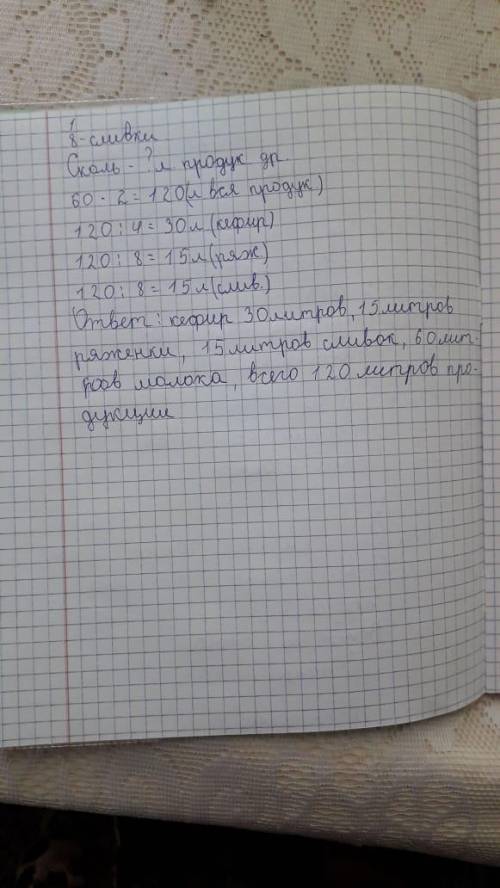 1
8-сливки
Сколь - ? л продук др
60 · 2 = 120(л вся продук)
120 : 4 = 30л(кефир)
120 : 8 = 15л(ряж)
120 : 8 = 15л(слив.)
Ответ: кефир 30литров, 15литров
ряженки, 15литров сливок, 60лит-
ров молока, всего 120 литров про-
дукции